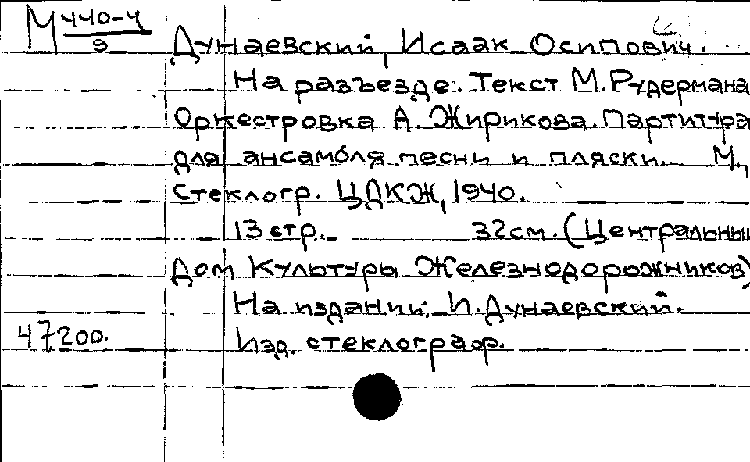 М 440-4
9
Дунаевский, Исаак Осипович.
На разъезде. Текст М. Рудермана
Оркестровка А. Жирикова. Партитура
для ансамбля песни и пляски. М.,
Стеклогр. ЦДКЖ, 1940.
13 стр. 32 см. (Центральный
Дом Культуры Железнодорожников)
На издании: И. Дунаевский.
47200. Изд. стеклограф.